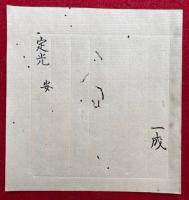 一成
定光
安